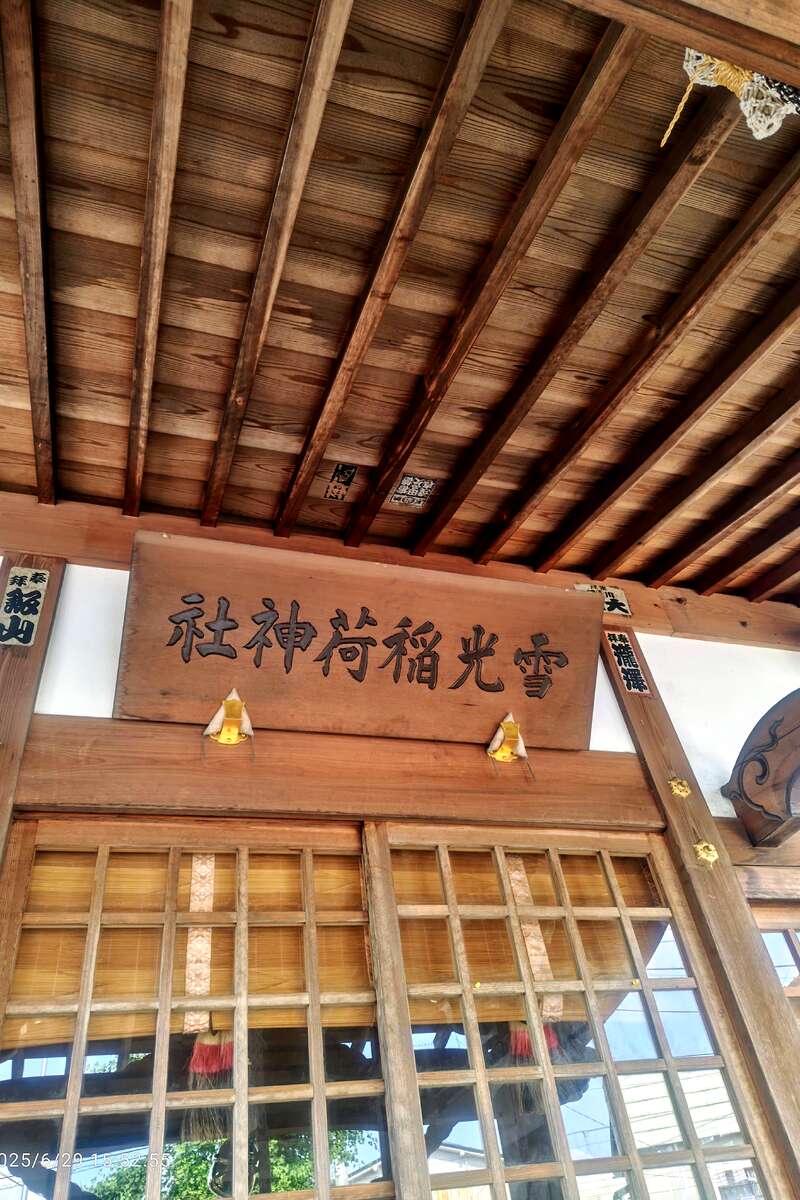 雪光稲荷神社
奉拝
飯山
奉拝
瀧澤
大
2025/6/29 15:52:55